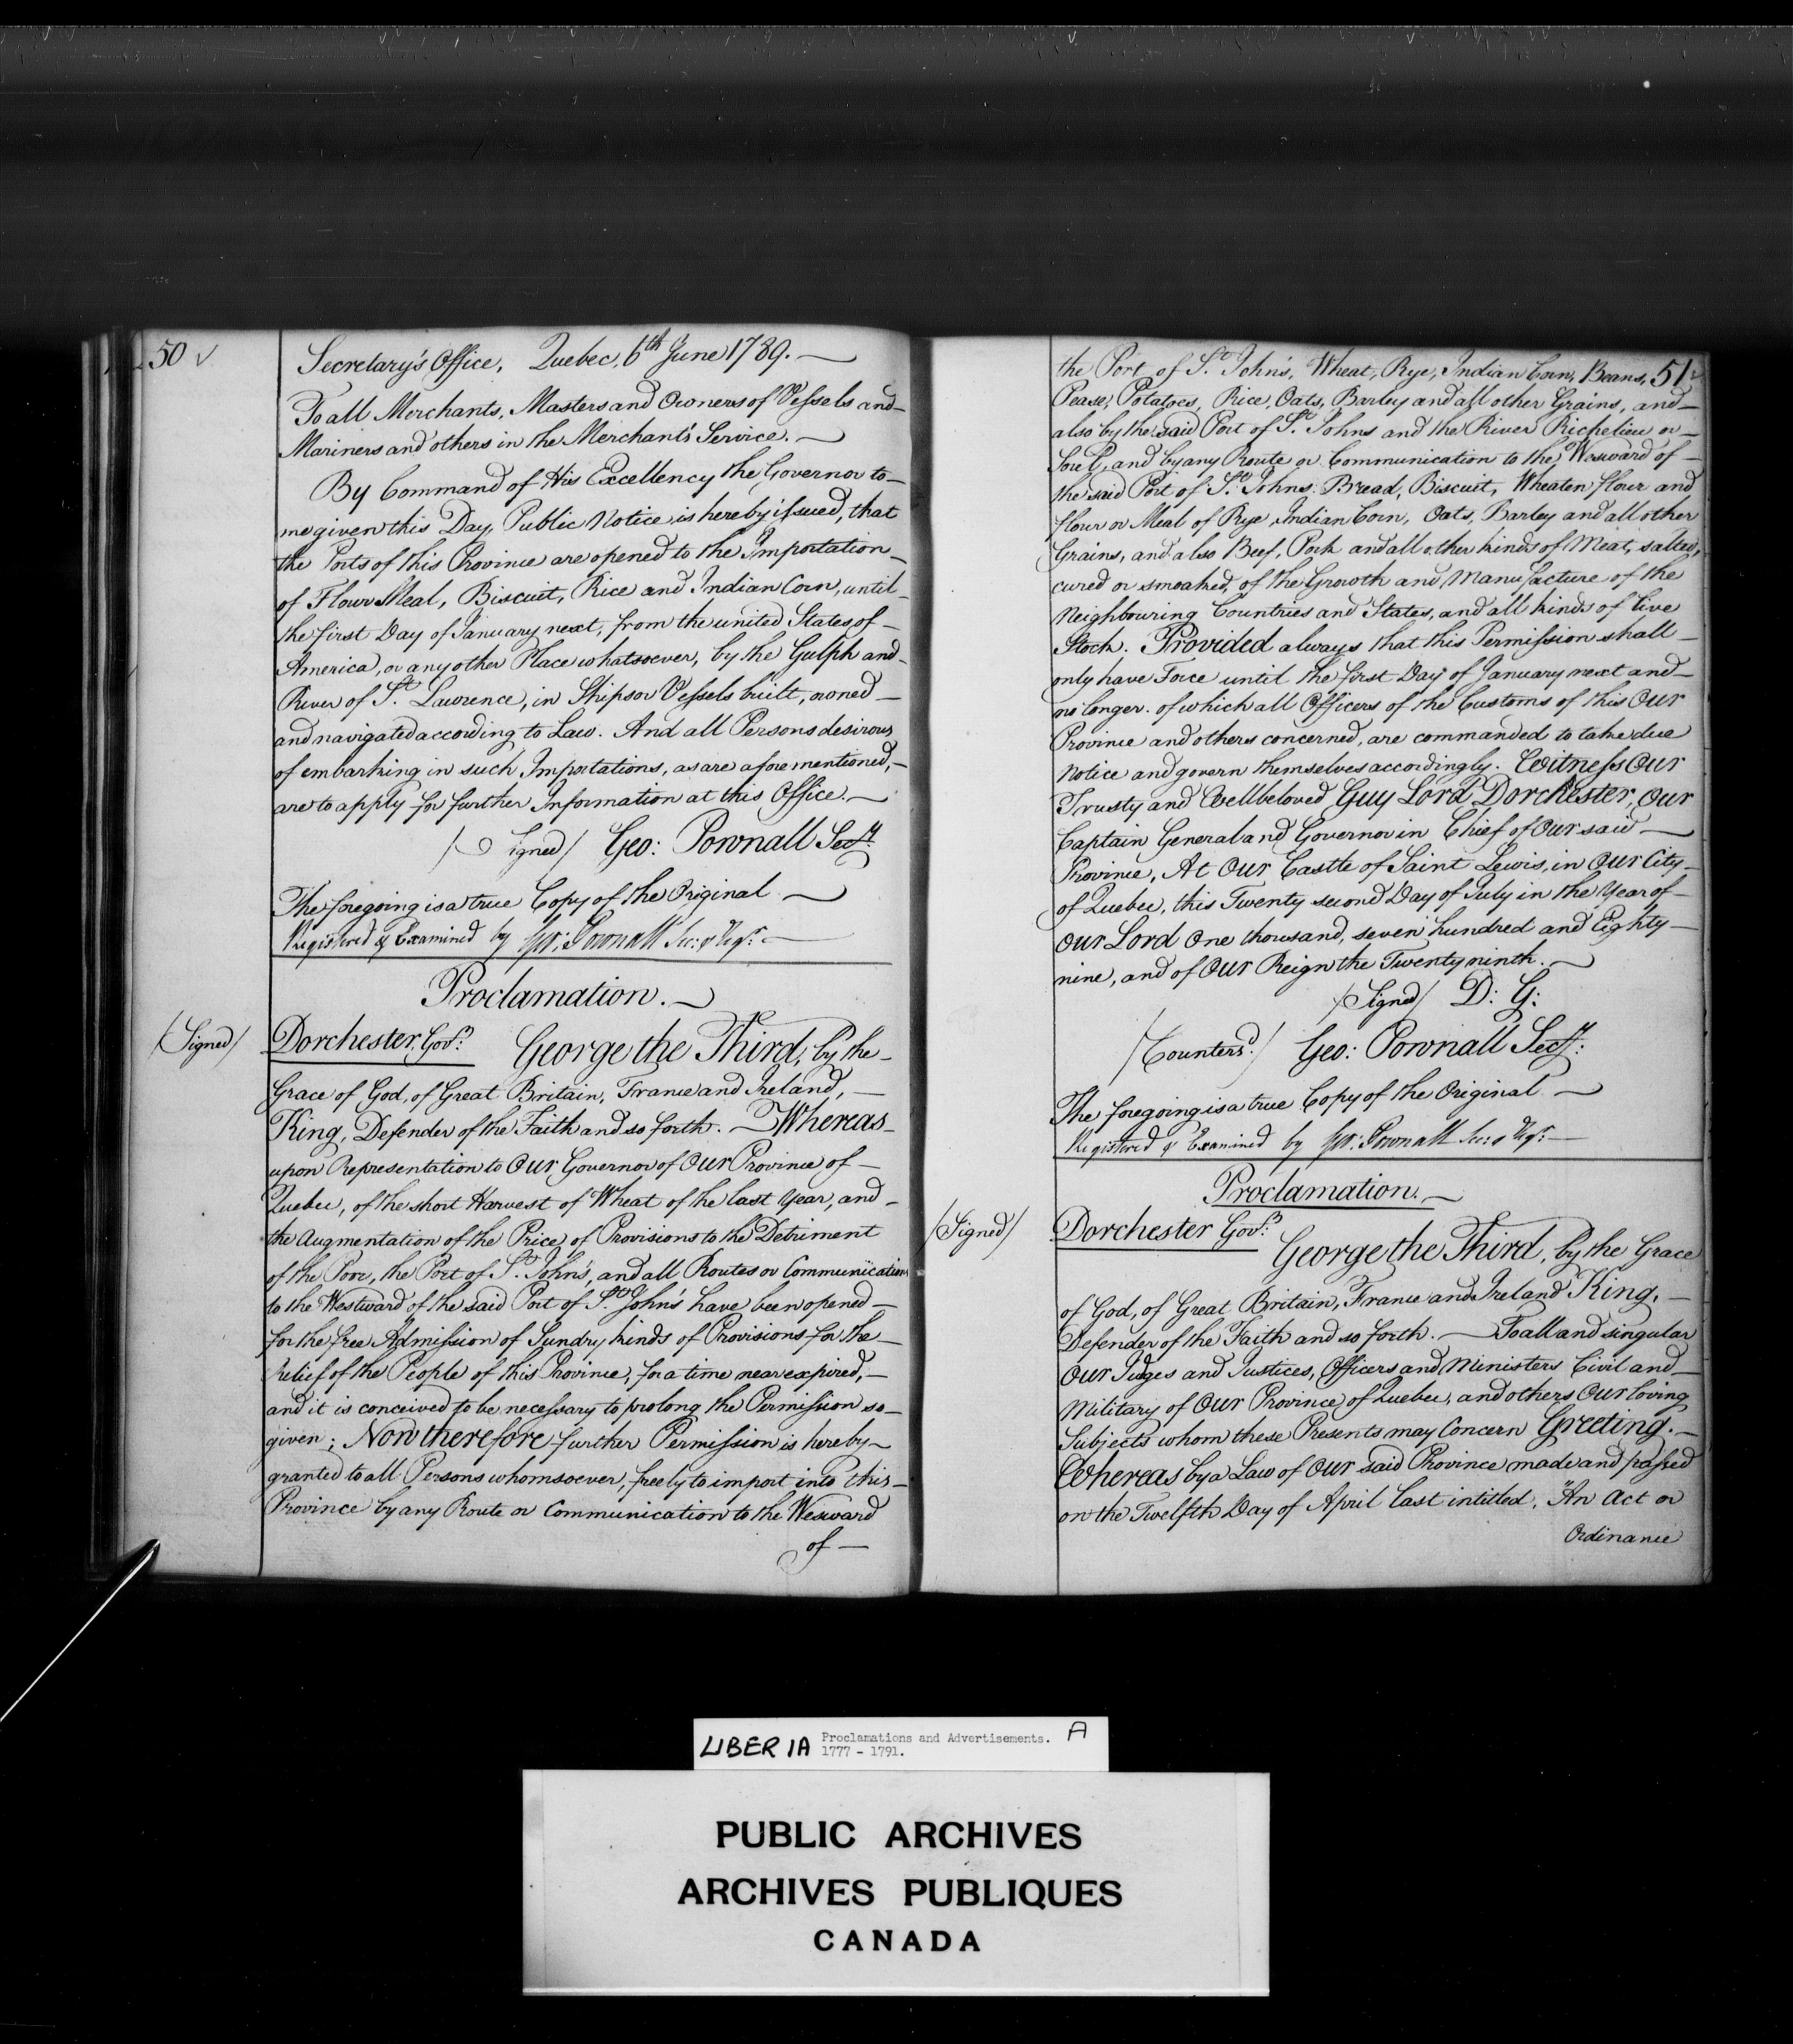 50 ✓
Secretary's Office, Quebec, 6th June 1789. —
To all Merchants, Masters and Owners of Vessels and —
Mariners and others in the Merchants Service. —
By Command of His Excellency the Governor to —
me given this Day, Public Notice is hereby issued, that
the Ports of this Province are opened to the Importation —
of Flour Meal, Biscuit, Rice and Indian Corn, until —
the first Day of January next, from the united States of —
America, or any other Place whatsoever, by the Gulph and —
River of St. Lawrence, in Ships or Vessels built, owned —
and navigated according to Law. And all Persons desirous
of embarking in such Importations, as are aforementioned, —
are to apply for further Information at this Office. —
/Signed/ Geo: Pownall Secry.
The foregoing is a true Copy of the Original —
Registered & Examined by Geo: Pownall Sec: & Regr. —
Proclamation. —
/Signed/ Dorchester, Govr: George the Third, by the —
Grace of God, of Great Britain, France and Ireland, —
King, Defender of the Faith and so forth. — Whereas —
upon Representation to Our Governor of Our Province of —
Quebec, of the short Harvest of Wheat of the last Year, and —
the Augmentation of the Price of Provisions to the Detriment
of the Poor, the Port of St. John's, and all Routes or Communications
to the Westward of the said Port of St. John's have been opened —
for the free Admission of Sundry kinds of Provisions for the —
relief of the People of this Province, for a time near expired, —
and it is conceived to be necessary to prolong the Permission so —
given; Now therefore further Permission is hereby —
granted to all Persons whomsoever, freely to import into this —
Province by any Route or Communication to the Westward
of —
the Port of St. John's, Wheat, Rye, Indian Corn, Beans, 51 ✓
Pease, Potatoes, Rice, Oats, Barley and all other Grains, and —
also by the said Port of St. Johns and the River Richelieu or —
Sorel, and by any Route or Communication to the Westward of —
the said Port of St. Johns: Bread, Biscuit, Wheaten flour and
flour or Meal of Rye, Indian Corn, Oats, Barley and all other
Grains, and also Beef, Pork and all other kinds of Meat, salted,
cured or smoaked, of the Growth and Manufacture of the
Neighbouring Countries and States, and all kinds of live
Stock. Provided always that this Permission shall —
only have Force until the first Day of January next and —
no longer. of which all Officers of the Customs of this Our
Province and others concerned, are commanded to take due
Notice and govern themselves accordingly. Witness Our
Trusty and Wellbeloved Guy Lord Dorchester, Our
Captain General and Governor in Chief of Our said —
Province, At Our Castle of Saint Lewis, in Our City —
of Quebec, this Twenty second Day of July in the Year of —
Our Lord One thousand, seven hundred and Eighty —
nine, and of Our Reign the Twenty ninth. —
/Signed/ D: G:
/Counters:d/ Geo: Pownall Secry:
The foregoing is a true Copy of the Original —
Registered & Examined by Geo: Pownall Sec: & Regr. —
Proclamation. —
/Signed/ Dorchester Govr:
George the Third, by the Grace
of God, of Great Britain, France and Ireland King, —
Defender of the Faith and so forth. — To all and singular
Our Judges and Justices, Officers and Ministers Civil and —
Military of Our Province of Quebec, and others Our loving
Subjects whom these Presents may Concern Greeting. —
Whereas by a Law of Our said Province made and passed
on the Twelfth Day of April last intitled, "An Act or
Ordinance
LIBER 1A Proclamations and Advertisements. A
1777 - 1791.
PUBLIC ARCHIVES
ARCHIVES PUBLIQUES
CANADA